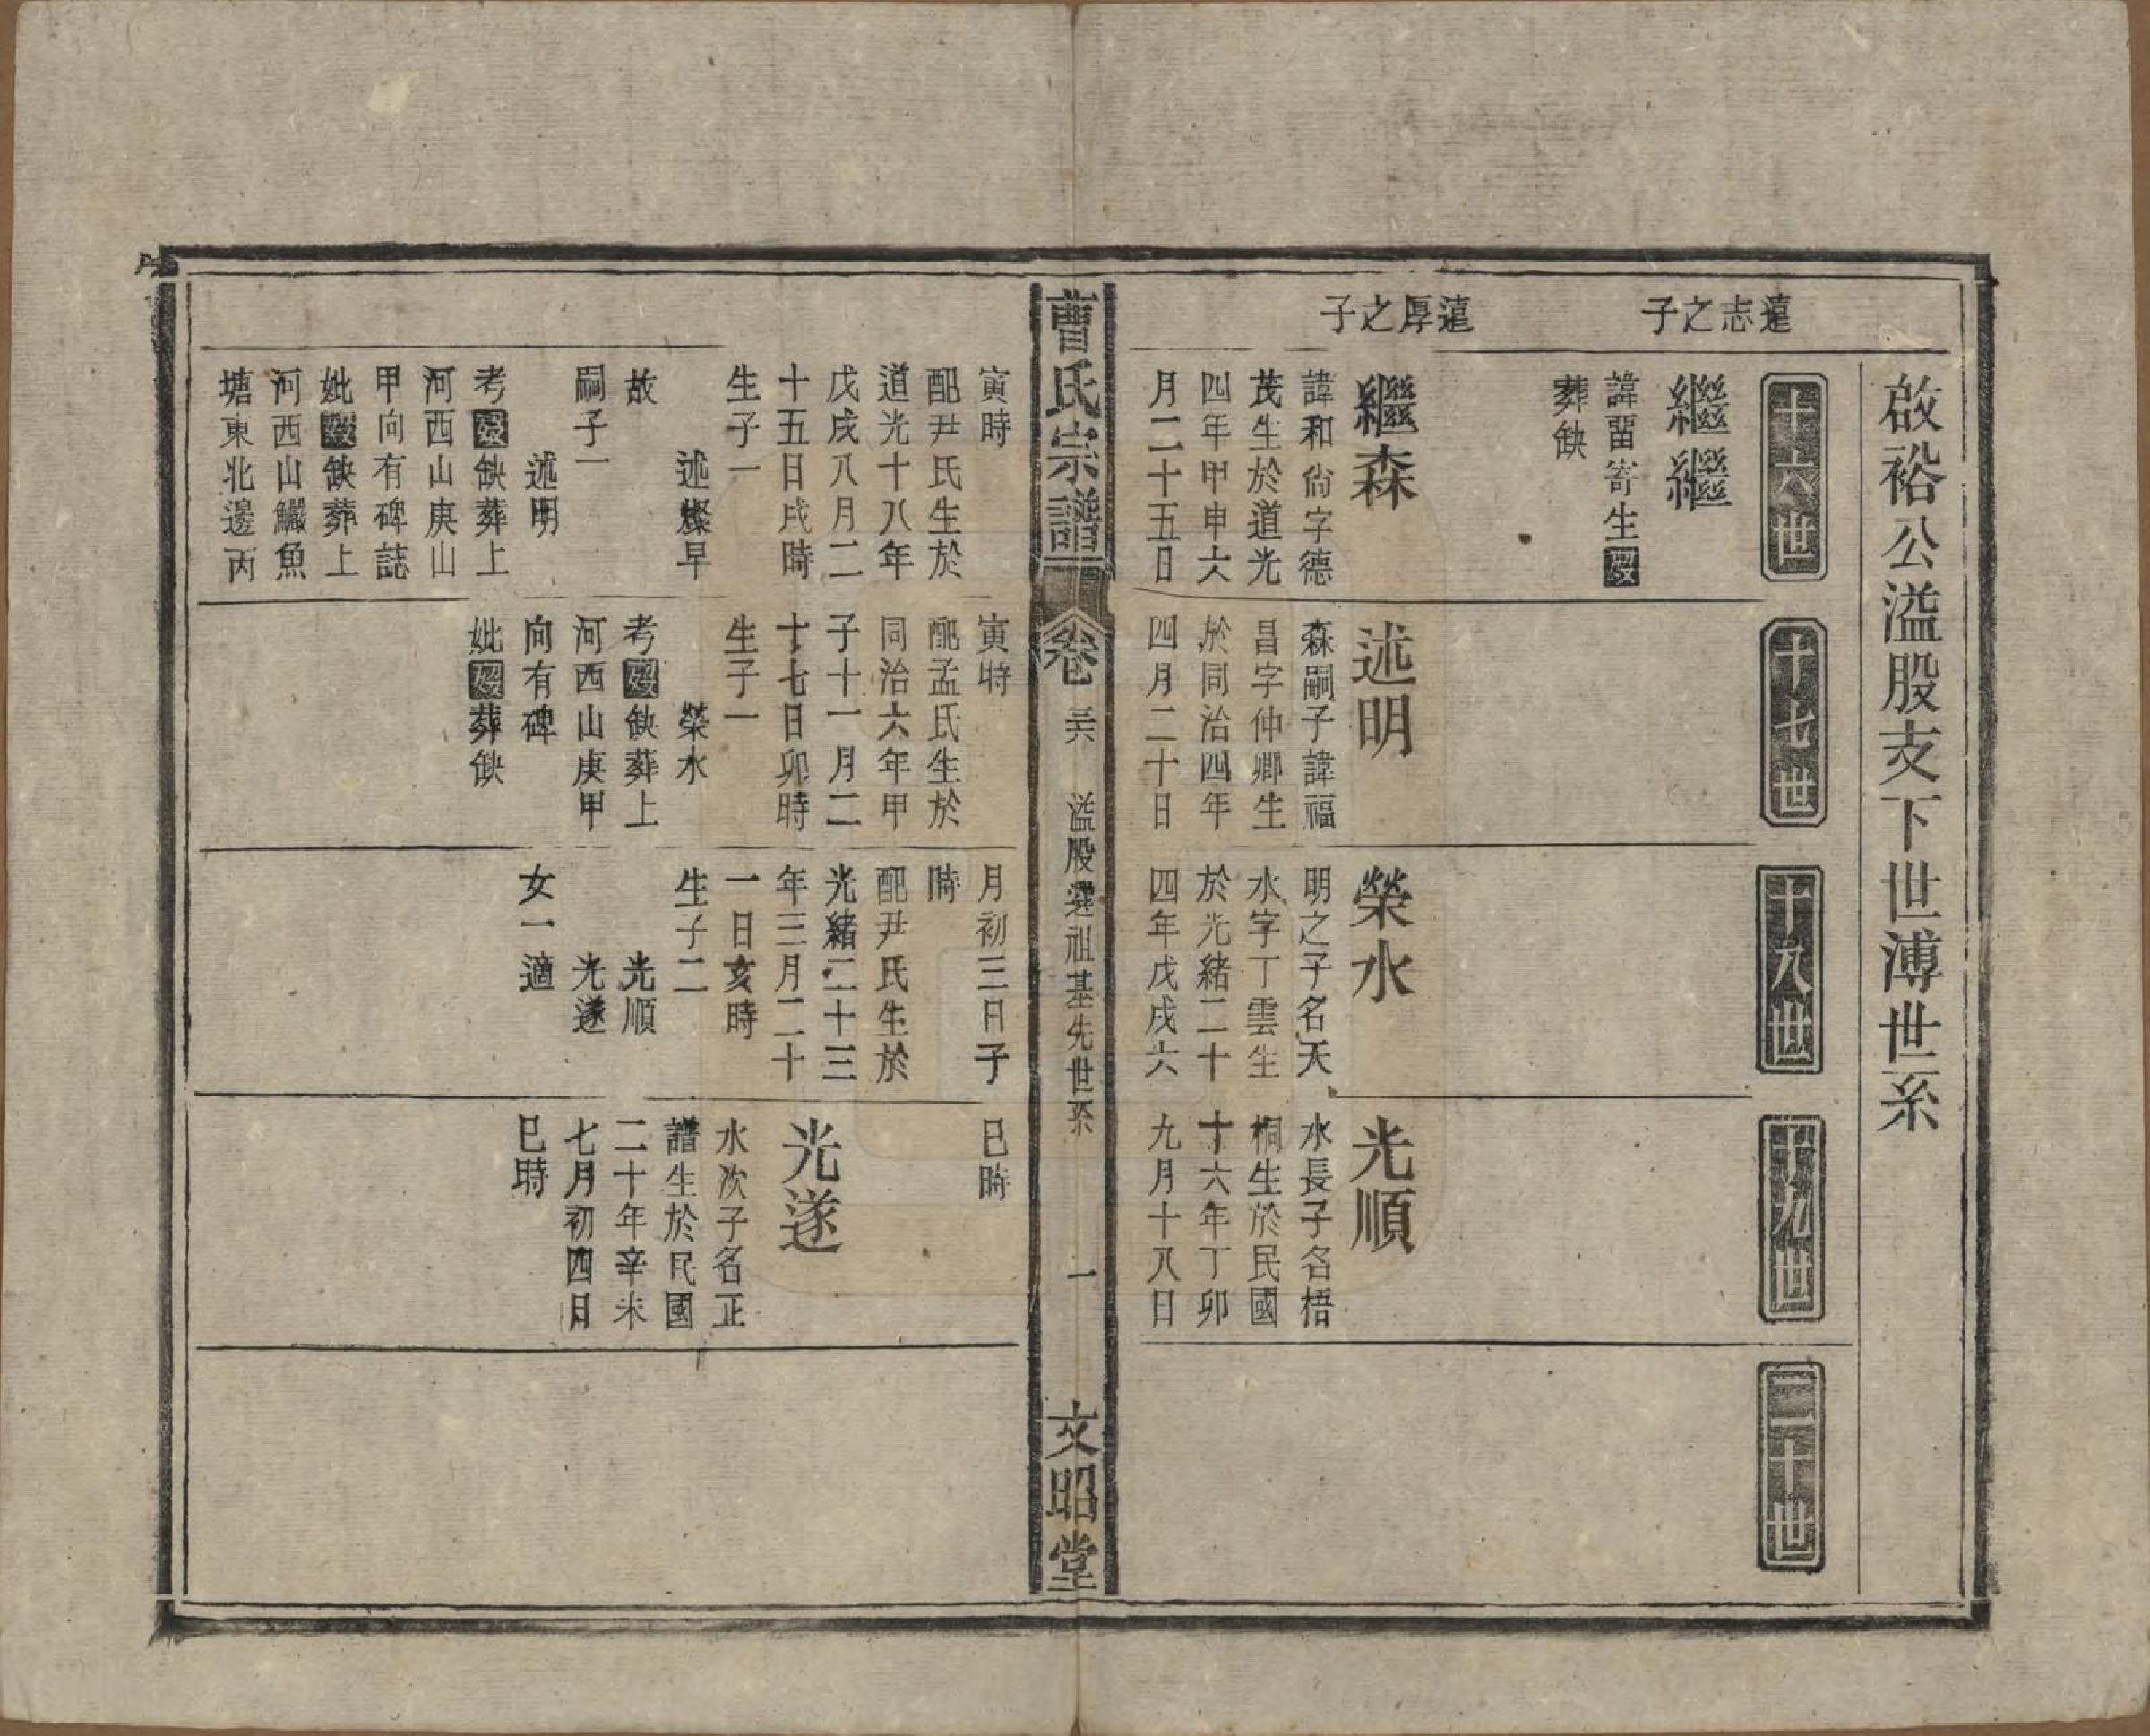 啟裕公溢股支下世溥世系
十六世
十七世
十八世
十九世
二十世
遠志之子
繼繼
諱畱寄生歿
葬缺
遠厚之子
繼森
諱和尙字德
茂生於道光
四年甲申六
月二十五日
述明
森嗣子諱福
昌字仲卿生
於同治四年
四月二十日
榮水
明之子名天
水字丁雲生
於光緒二十
四年戊戌六
光順
水長子名梧
桐生於民國
十六年丁卯
九月十八日
曹氏宗譜
卷
溢股遷祖基先世系
一
文昭堂
寅時
配尹氏生於
道光十八年
戊戌八月二
十五日戌時
生子一
述燦早
故
嗣子一
述明
考歿缺葬上
河西山庚山
甲向有碑誌
妣歿缺葬上
河西山鱺魚
塘東北邊丙
寅時
配孟氏生於
同治六年甲
子十一月二
十七日卯時
生子一
榮水
考歿缺葬上
河西山庚甲
向有碑
妣歿葬缺
月初三日子
時
配尹氏生於
光緒二十三
年三月二十
一日亥時
生子二
光順
光遂
女一適
巳時
光遂
水次子名正
譜生於民國
二十年辛未
七月初四日
巳時